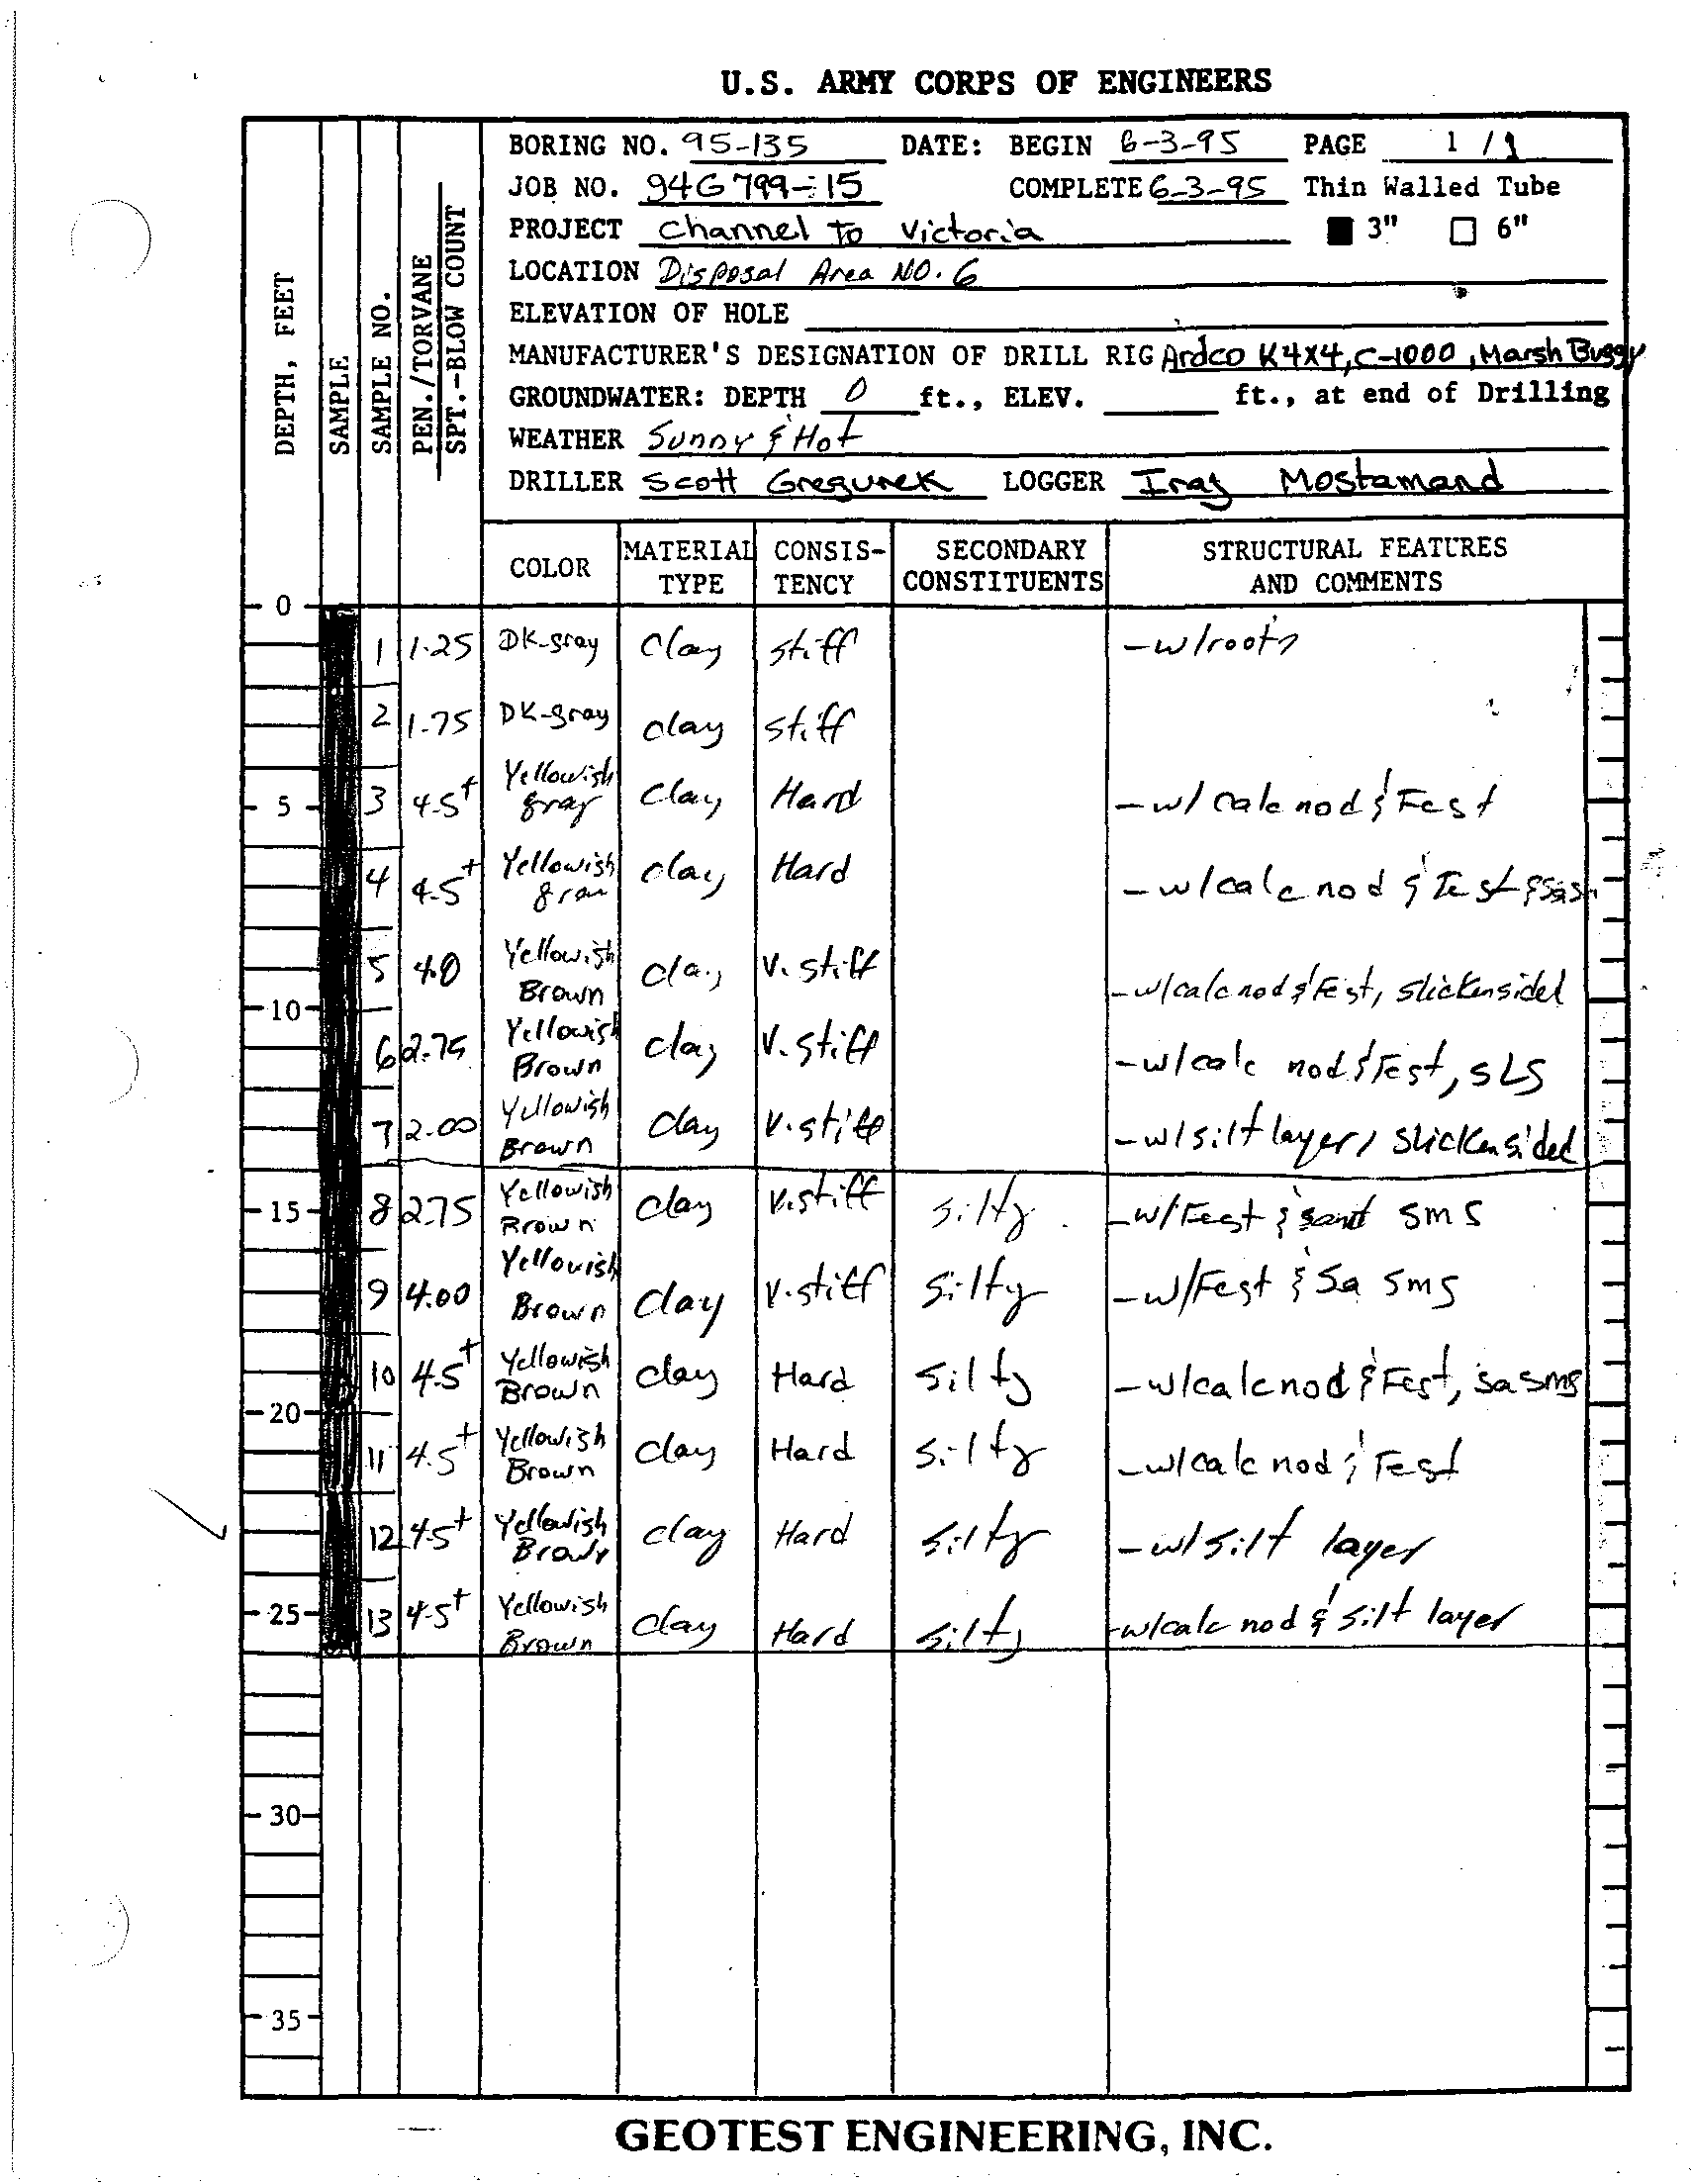 U.S. ARMY CORPS OF ENGINEERS
BORING NO. 95-135 DATE: BEGIN 6-3-95 PAGE 1 / 1
JOB NO. 94G799-15 COMPLETE 6-3-95 Thin Walled Tube
PROJECT Channel To Victoria ■ 3" □ 6"
LOCATION Disposal Area NO. 6
ELEVATION OF HOLE
MANUFACTURER'S DESIGNATION OF DRILL RIG Ardco K4x4, C-1000, Marsh Buggy
GROUNDWATER: DEPTH 0 ft., ELEV. ft., at end of Drilling
WEATHER Sunny & Hot
DRILLER Scott Gregurek LOGGER Iraj Mostamand
DEPTH, FEET
SAMPLE
SAMPLE NO.
PEN./TORVANE
SPT.-BLOW COUNT
COLOR MATERIAL TYPE CONSIS-TENCY SECONDARY CONSTITUENTS STRUCTURAL FEATURES AND COMMENTS
0
1 1.25 DK-gray Clay stiff -w/roots
2 1.75 DK-gray clay stiff
5 3 4.5+ Yellowish gray Clay Hard -w/ calc nod & Fest
4 4.5+ Yellowish gray clay Hard -w/calc nod & Fest
5 4.0 Yellowish Brown clay V. stiff -w/calc nod & Fest, slickensided
10
6 2.75 Yellowish Brown clay V. stiff -w/calc nod & Fest, SLS
7 2.00 Yellowish Brown Clay V. stiff -w/silt layer, slickensided
15 8 2.75 Yellowish Brown Clay V. stiff silty -w/Fest & sand sms
9 4.00 Yellowish Brown Clay V. stiff silty -w/Fest & Sa sms
10 4.5+ Yellowish Brown clay Hard silty -w/calc nod & Fest, sa sms
20
11 4.5+ Yellowish Brown clay Hard silty -w/calc nod & Fest
12 4.5+ Yellowish Brown clay Hard silty -w/silt layer
25 13 4.5+ Yellowish Brown Clay Hard silty -w/calc nod & silt layer
30
35
GEOTEST ENGINEERING, INC.